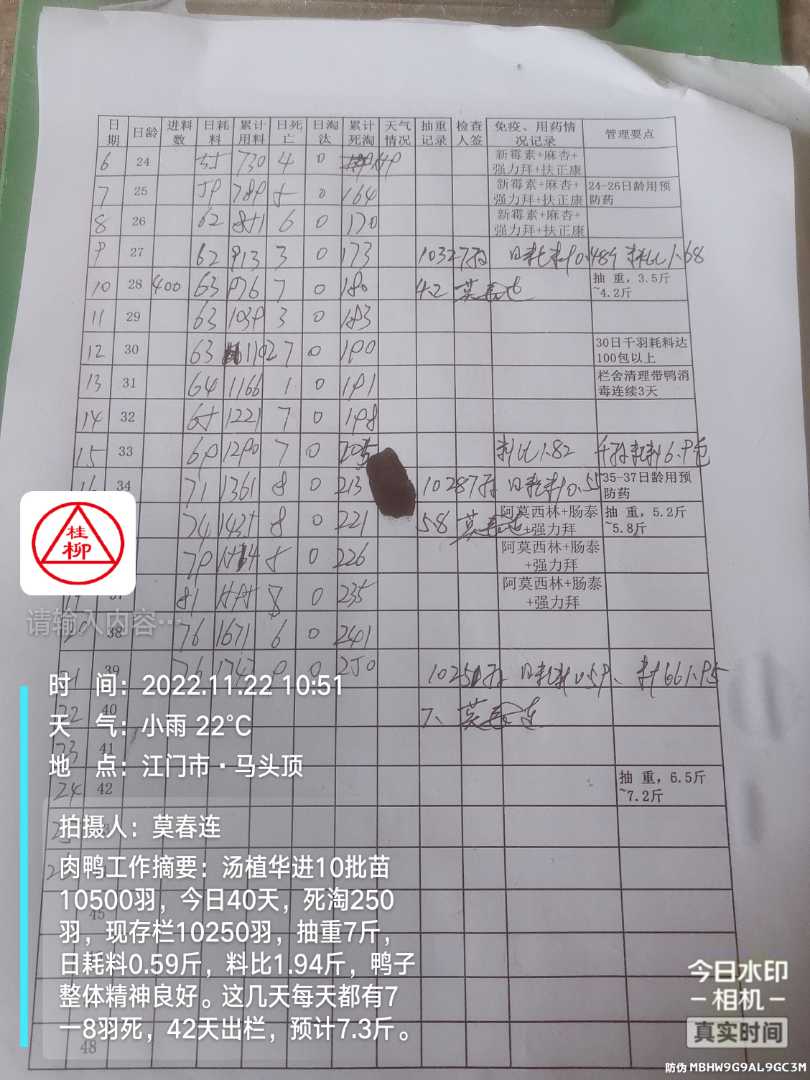 日期 日龄 进料数 日耗料 累计用料 日死亡 日淘汰 累计死淘 天气情况 抽重记录 检查人签 免疫、用药情况记录 管理要点
6 24 730 4 0 新霉素+麻杏+强力拜+扶正康
7 25 0 164 新霉素+麻杏+强力拜+扶正康 24-26日龄用预防药
8 26 62 6 0 170 新霉素+麻杏+强力拜+扶正康
9 27 62 913 3 0 173 10327羽
10 28 400 63 976 7 0 180 4.2 莫春连 抽 重，3.5斤~4.2斤
11 29 63 1039 3 0 183
12 30 63 1102 7 0 190 30日千羽耗料达100包以上
13 31 64 1166 1 0 191 栏舍清理带鸭消毒连续3天
14 32 1221 7 0 198
15 33 69 1290 7 0 料比1.82
34 71 1361 8 0 213 10287羽 日耗料0.55 35-37日龄用预防药
74 1435 8 0 221 5.8 莫春连 阿莫西林+肠泰+强力拜 抽 重，5.2斤~5.8斤
79 0 226 阿莫西林+肠泰+强力拜
81 8 0 235 阿莫西林+肠泰+强力拜
38 76 1671 6 0 241
21 39 76 0 250 10250羽 日耗料0.59、
22 40 7、莫春连
23 41
24 42 抽 重，6.5斤~7.2斤
45
48
桂柳
请输入内容…
时 间：2022.11.22 10:51
天 气：小雨 22℃
地 点：江门市·马头顶
拍摄人：莫春连
肉鸭工作摘要：汤植华进10批苗
10500羽，今日40天，死淘250
羽，现存栏10250羽，抽重7斤，
日耗料0.59斤，料比1.94斤，鸭子
整体精神良好。这几天每天都有7
一8羽死，42天出栏，预计7.3斤。
今日水印
-相机-
真实时间
防伪 MBHW9G9AL9GC3M